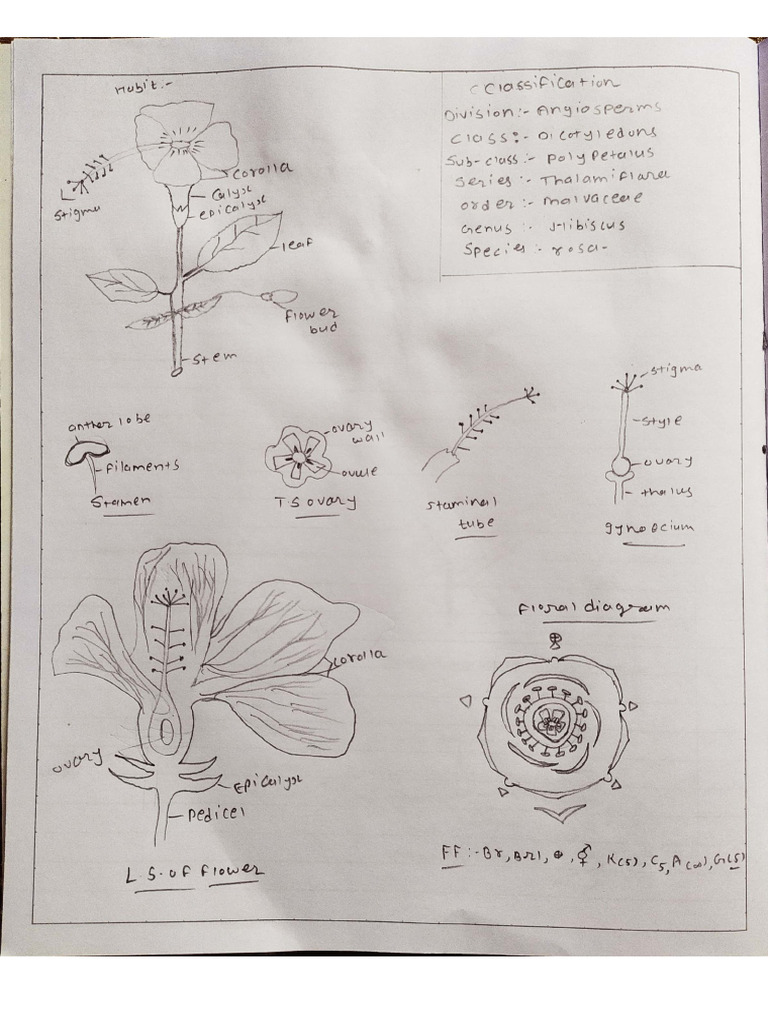 Habit:-
corolla
Calyx
epicalyx
Stigma
leaf
flower
bud
stem
Classification
Division:- Angiosperms
Class:- Dicotyledons
Sub-class:- Polypetalus
Series:- Thalamiflora
Order:- Malvaceae
Genus:- Hibiscus
Species:- rosa-
anther lobe
filaments
Stamen
ovary
wall
ovule
T.S ovary
staminal
tube
stigma
style
ovary
thalus
gynoecium
corolla
ovary
Epicalyx
Pedicel
L.S. of flower
Floral diagram
⊕
FF:- Br, Brl, ⊕, ⚥, K(5), C5, A(∞), G(5)